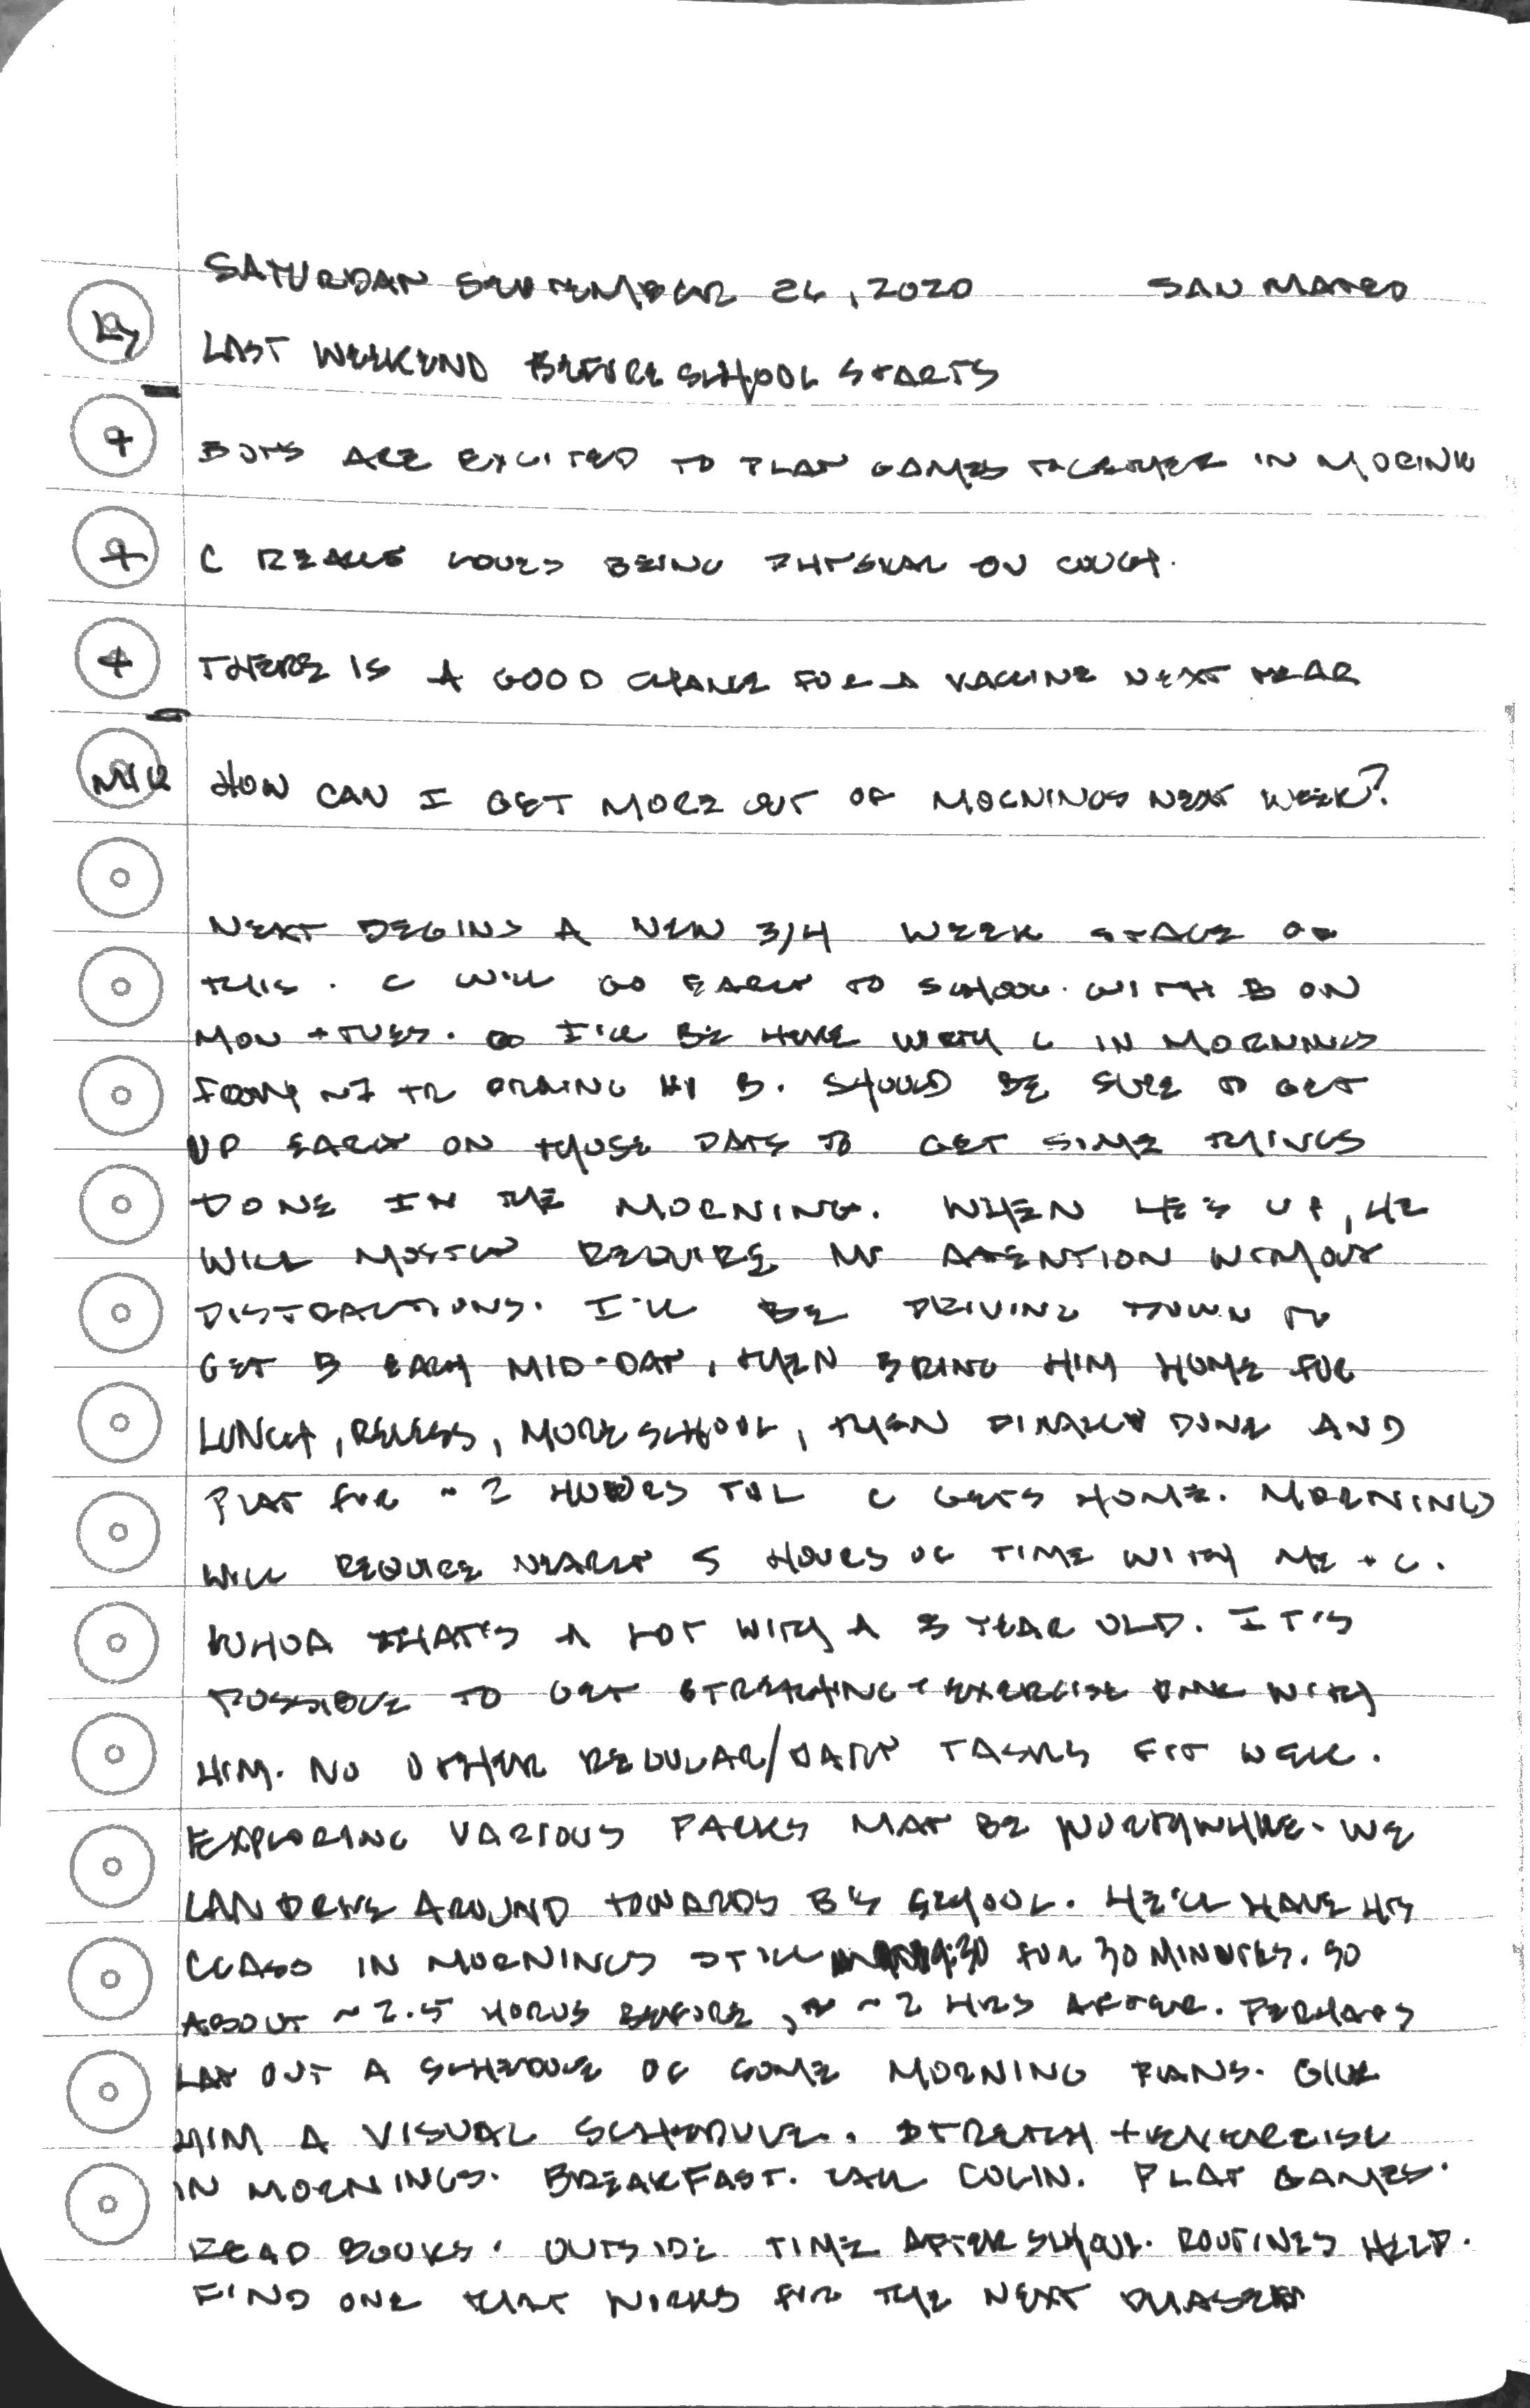 SATURDAY SEPTEMBER 26, 2020 SAN MATEO
LAST WEEKEND BEFORE SCHOOL STARTS
+ BOYS ARE EXCITED TO PLAY GAMES TOGETHER IN MORING
+ C REALLY LOVES BEING PHYSICAL ON COUCH.
+ THERE IS A GOOD CHANCE FOR A VACCINE NEXT YEAR
HOW CAN I GET MORE OUT OF MORNINGS NEXT WEEK?
NEXT BEGINS A NEW 3/4 WEEK STAGE OF
THIS. C WILL GO EARLY TO SCHOOL WITH B ON
MON + TUES. I'LL BE HERE WITH C IN MORNINGS
B. SHOULD BE SURE TO GET
UP EARLY ON THOSE DAYS TO GET SOME THINGS
DONE IN THE MORNING. WHEN HE'S UP, HE
WILL MOSTLY REQUIRE MY ATTENTION WITHOUT
DISTRACTIONS. I'LL BE DRIVING DOWN TO
GET B EACH MID-DAY, THEN BRING HIM HOME FOR
LUNCH, RECESS, MORE SCHOOL, THEN FINALLY DONE AND
PLAY FOR ~2 HOURS TIL C GETS HOME. MORNINGS
WILL REQUIRE NEARLY 5 HOURS OF TIME WITH ME + C.
WHOA THAT'S A LOT WITH A 3 YEAR OLD. IT'S
POSSIBLE TO GET STRETCHING + EXERCISE DONE WITH
HIM. NO OTHER REGULAR/DAILY TASKS FIT WELL.
EXPLORING VARIOUS PARKS MAY BE WORTHWHILE. WE
CAN DRIVE AROUND TOWARDS B'S SCHOOL. HE'LL HAVE HIS
CLASS IN MORNINGS STILL 9:30 FOR 30 MINUTES. SO
ABOUT ~2.5 HORUS BEFORE, ~2 HRS AFTER. PERHAPS
LAY OUT A SCHEDULE OF SOME MORNING PLANS. GIVE
HIM A VISUAL SCHEDULE. STRETCH + EXERCISE
IN MORNINGS. BREAKFAST. CALL COLIN. PLAY GAMES.
READ BOOKS. OUTSIDE TIME AFTER SCHOOL. ROUTINES HELP.
FIND ONE THAT WORKS FOR THE NEXT PHASE